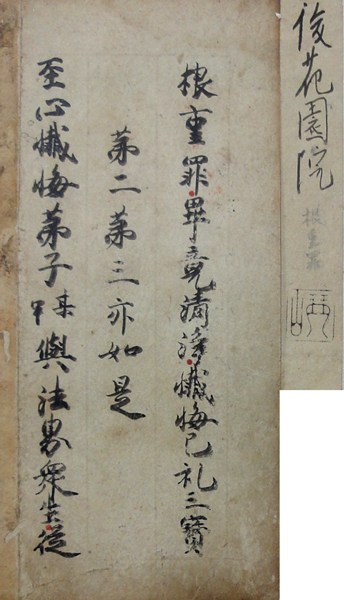 根重罪畢竟清浄懺悔已礼三寳
第二第三亦如是
至心懺悔苐子某甲與法界衆生従
後花園院
根重罪